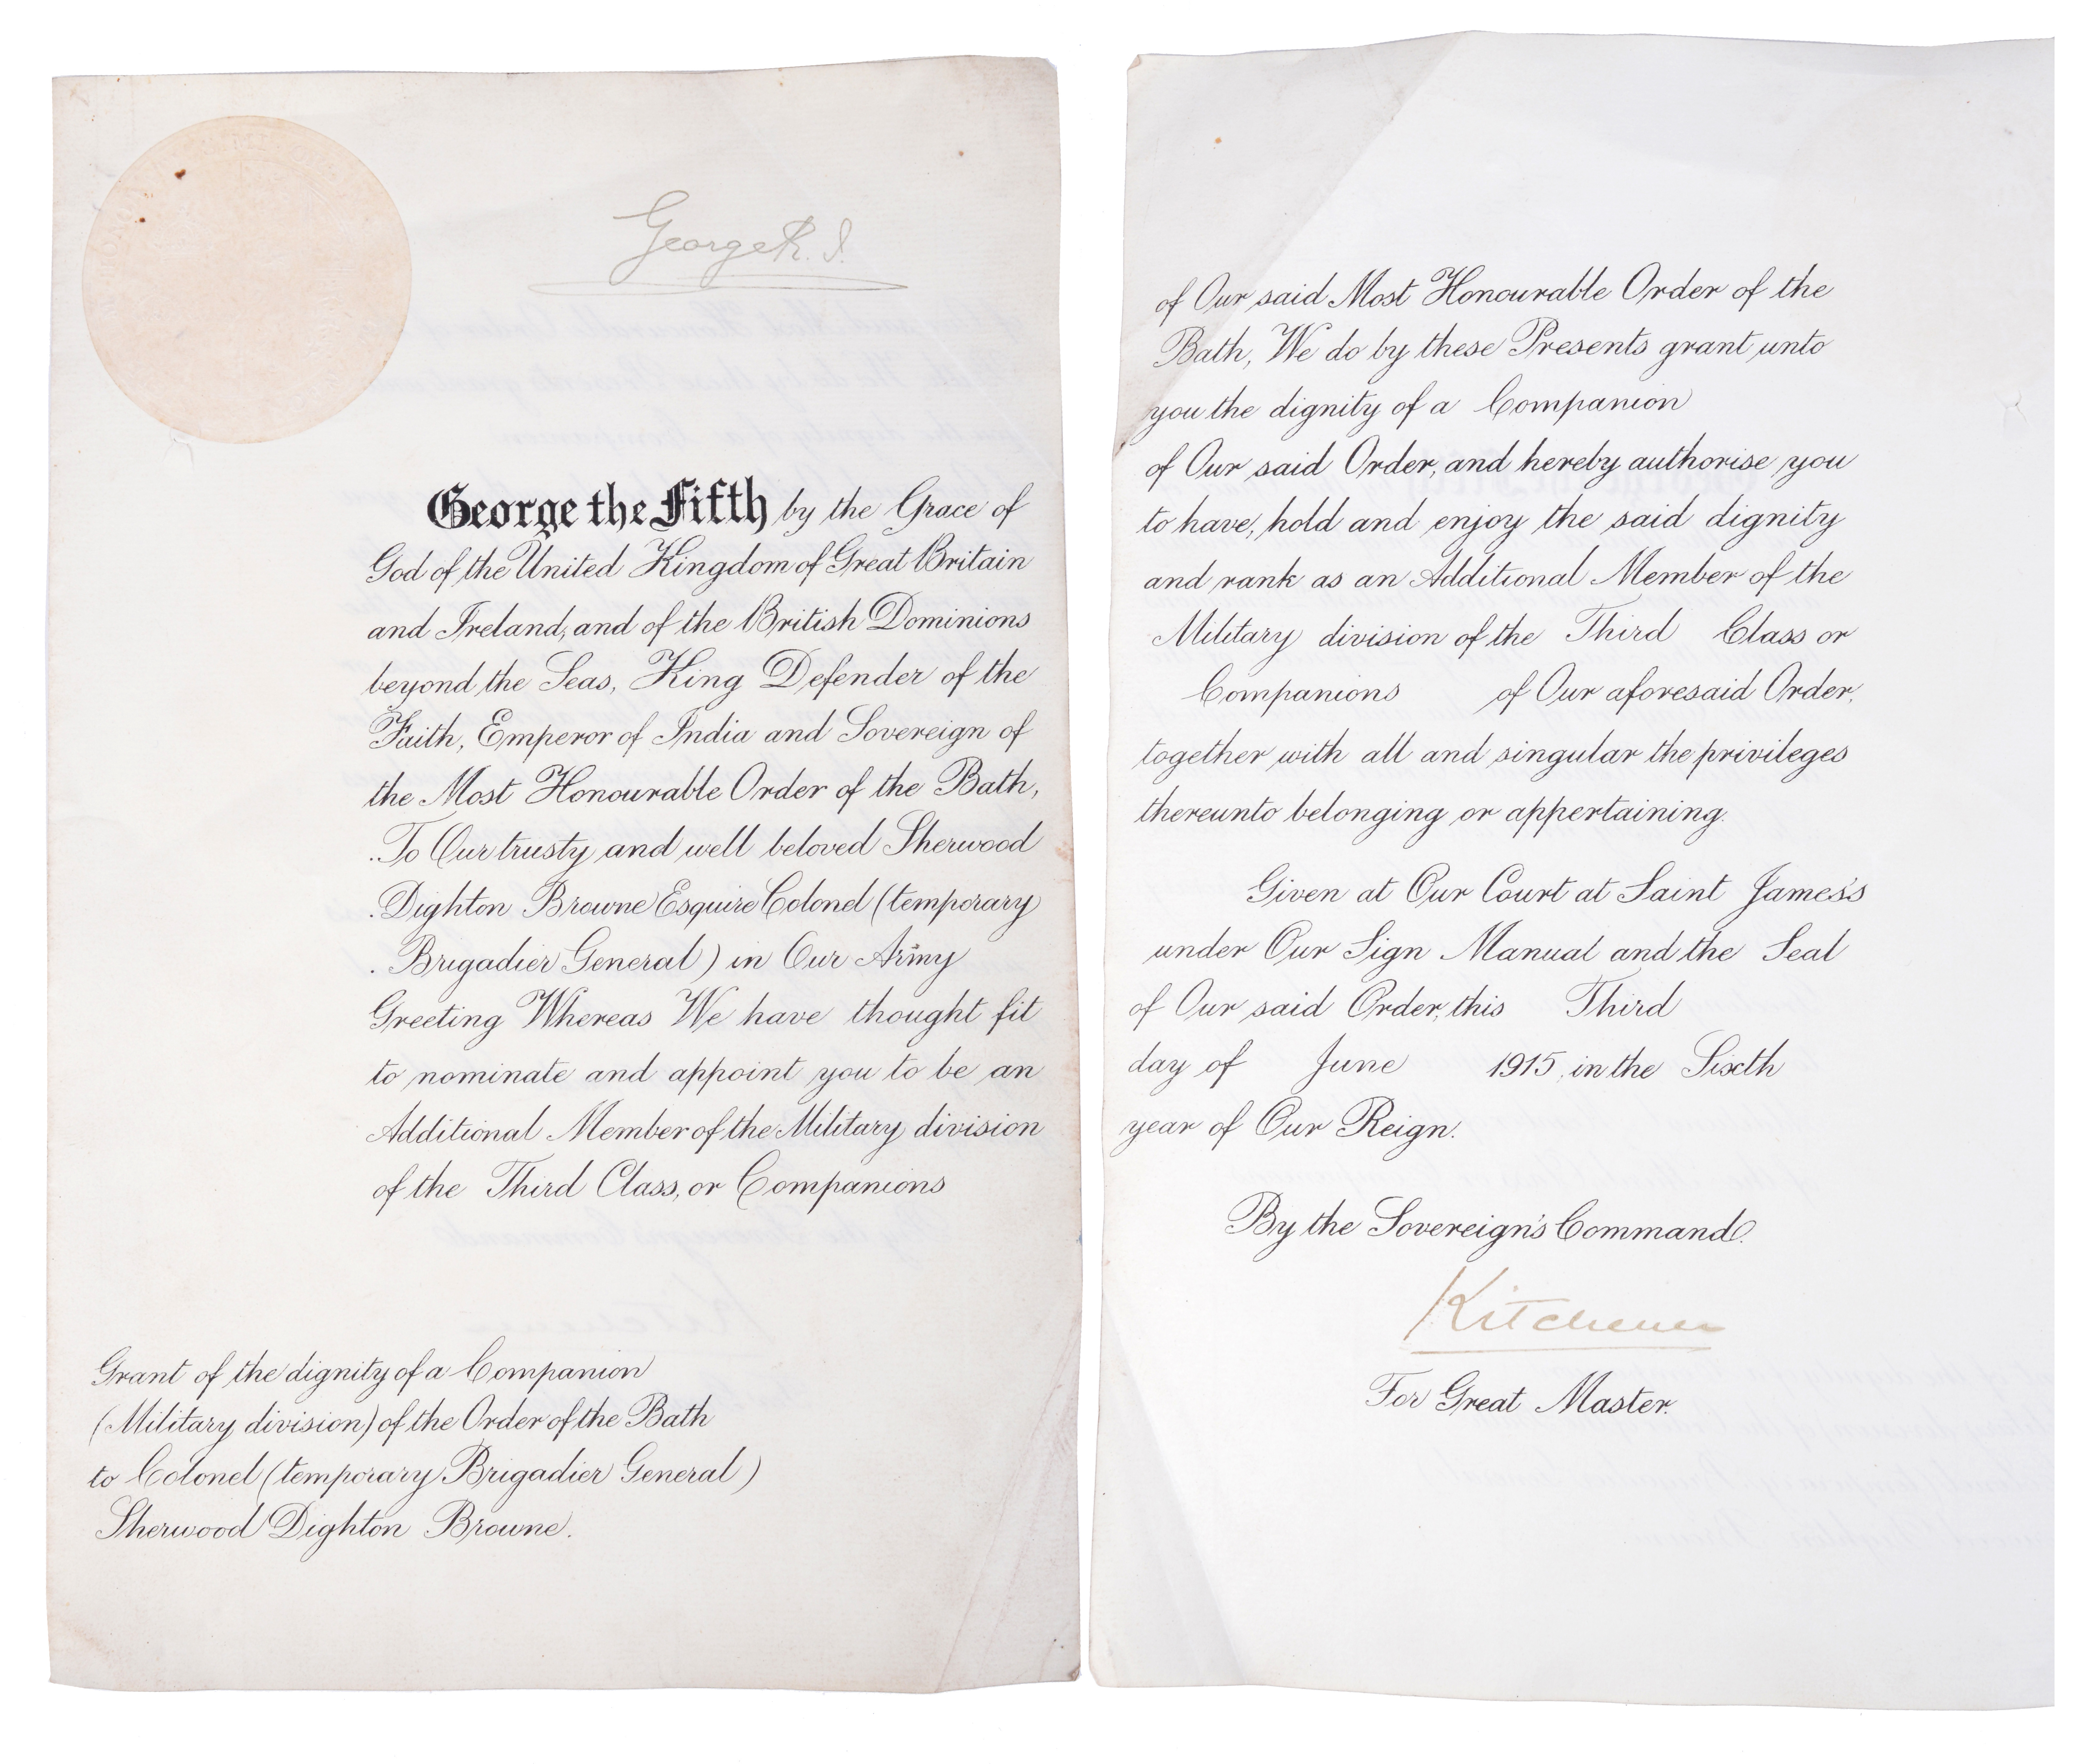 George R. I.
George the Fifth by the Grace of
God of the United Kingdom of Great Britain
and Ireland, and of the British Dominions
beyond the Seas, King Defender of the
Faith, Emperor of India and Sovereign of
the Most Honourable Order of the Bath,
To Our trusty and well beloved Sherwood
Dighton Browne Esquire Colonel (temporary
Brigadier General) in Our Army
Greeting Whereas We have thought fit
to nominate and appoint you to be an
Additional Member of the Military division
of the Third Class, or Companions
Grant of the dignity of a Companion
(Military division) of the Order of the Bath
to Colonel (temporary Brigadier General)
Sherwood Dighton Browne.
of Our said Most Honourable Order of the
Bath, We do by these Presents grant unto
you the dignity of a Companion
of Our said Order, and hereby authorise you
to have, hold and enjoy the said dignity
and rank as an Additional Member of the
Military division of the Third Class or
Companions of Our aforesaid Order,
together with all and singular the privileges
thereunto belonging or appertaining.
Given at Our Court at Saint James's
under Our Sign Manual and the Seal
of Our said Order, this Third
day of June 1915, in the Sixth
year of Our Reign.
By the Sovereign's Command.
Kitchener
For Great Master.